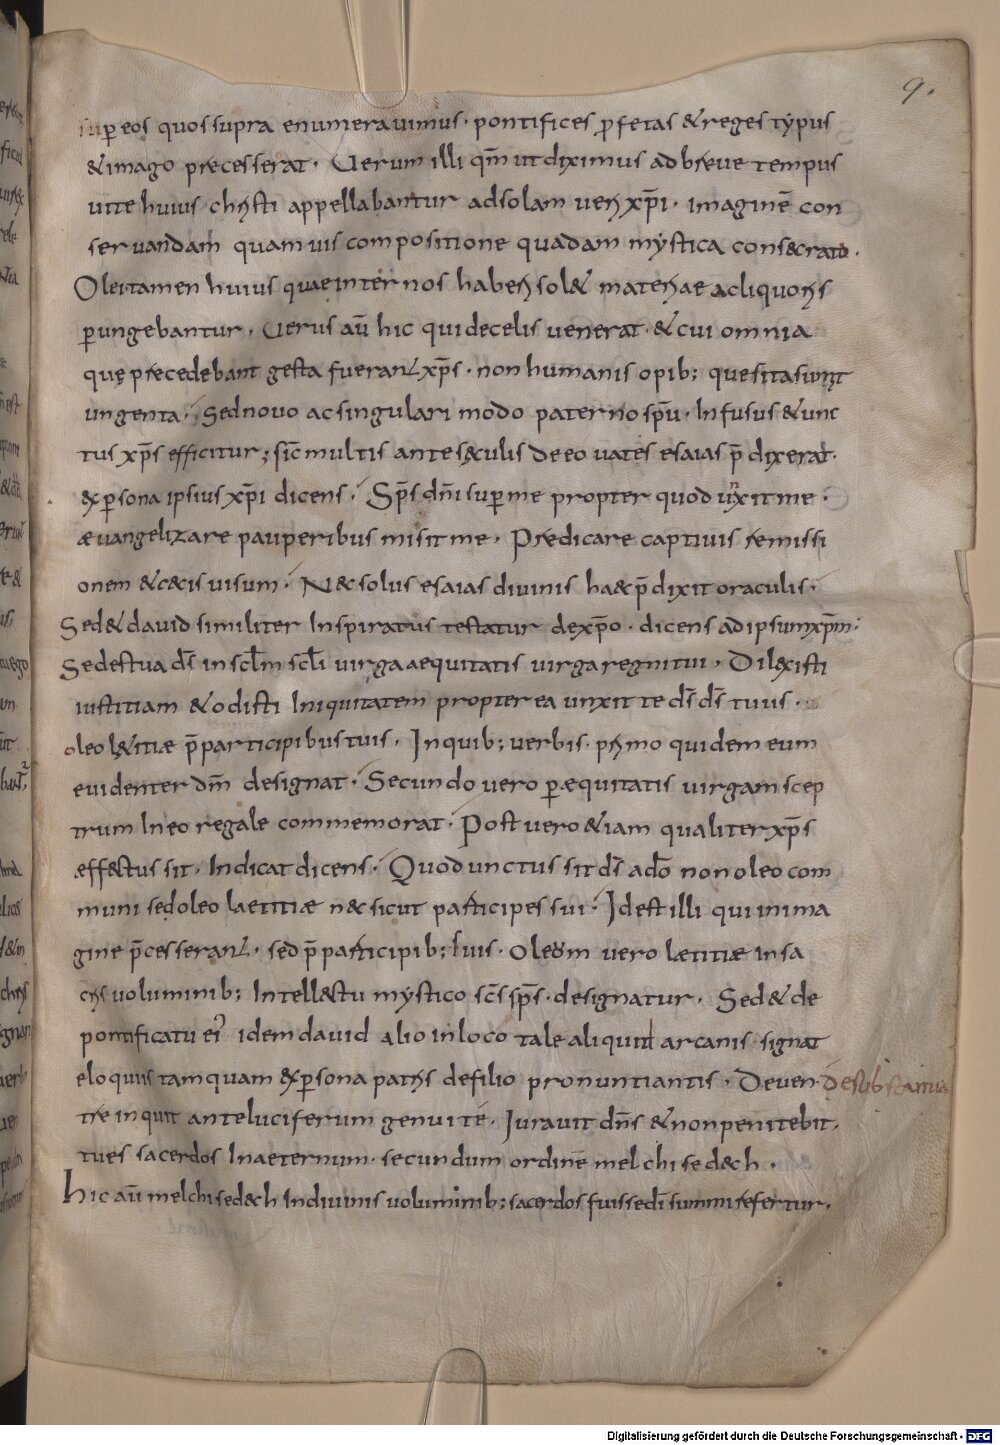 9.
sup eos quos supra enumerauimus· pontifices ꝓfetas &reges typus
&imago precesserat· Uerum illi qm̄ ut diximus ad breue tempus
uite huius christi appellabantur ad solam ueri xp̄i· imaginē con
seruandam quam uis compositione quadam mystica consecrato·
Olei tamen huius quae inter nos haberi sol& materiae ac liquoris
ꝑungebantur· Uerus aū hic qui de celis uenerat· & cui omnia
quę precedebant gesta fuerant xp̄s· non humanis opib; quesita sunt
ungenta· Sed nouo ac singulari modo paterno sp̄u· Infusus & unc
tus xp̄s efficitur; sic̄ multis ante sęculis de eo uates esaias p̄dixerat·
&ꝑsona ipsius xp̄i dicens· Sp̄s dn̄i suꝑ me propter quod unxit me·
æuangelizare pauperibus misit me· Predicare captiuis remissi
onem & c&is uisum· N& solus esaias diuinis ha& p̄dixit oraculis·
Sed & dauid similiter Inspiratus testatur de xp̄o· dicens ad ipsum xp̄m·
Sedes tua ds̄ in scl̄m scl̄i uirga aequitatis uirga regni tui· Dilexisti
iustitiam & odisti Iniquitatem propter ea unxit te ds̄ ds̄ tuus·
oleo l&itiæ p̄ participibus tuis· In quib; uerbis· primo quidem eum
euidenter dm̄ designat· Secundo uero ꝑ æquitatis uirgam scep
trum In eo regale commemorat· Post uero &iam qualiter xp̄s
æff&tus sit· Indicat dicens· Quod unctus sit ds̄ a do̅ non oleo com
muni sed oleo laetitiæ n& sicut participes sui· Id est illi qui in ima
gine p̄cesserant· sed p̄ participib; suis· Oleum uero lætitiæ in sa
cris uoluminib; Intell&tu mystico sc̄s sp̄s· designatur· Sed & de
pontificatu ei' idem dauid alio in loco tale aliquid arcanis signat
eloquiis tamquam &ꝑsona patris de filio pronuntiantis· De uen
de substantia
tre inquit ante luciferum genui te· Iurauit dn̄s & non penitebit·
tu es sacerdos In aeternum· secundum ordinē melchised&ch·
Hic aū melchised&ch In diuinis uoluminib; sacerdos fuisse dī summi refertur·
Digitalisierung gefördert durch die Deutsche Forschungsgemeinschaft - DFG